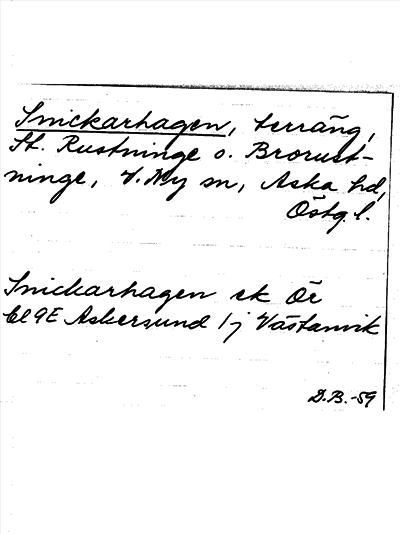 Snickarhagen, terräng,
St. Rustninge o. Brorust-
ninge, V. Ny sn, Aska hd,
Östg. l.
Snickarhagen ek Ör
8E9E Askersund 1 j Västanvik
D.B. -59